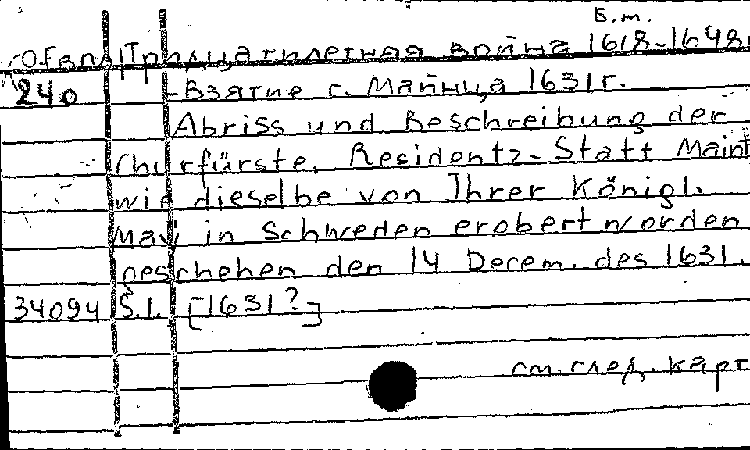 Б.т.
Отвлп Тридцатилетняя война 1618-1648г
240 - Взятие г. Майнца 1631г.
Abriss und Beschreibung der
Churfürste. Residentz-Statt Maint
wie dieselbe von Ihrer Königl.
May in Schweden erobert worden
geschehen den 14 Decem. des 1631.
34094 S.l. [1631?]
см. след. карт